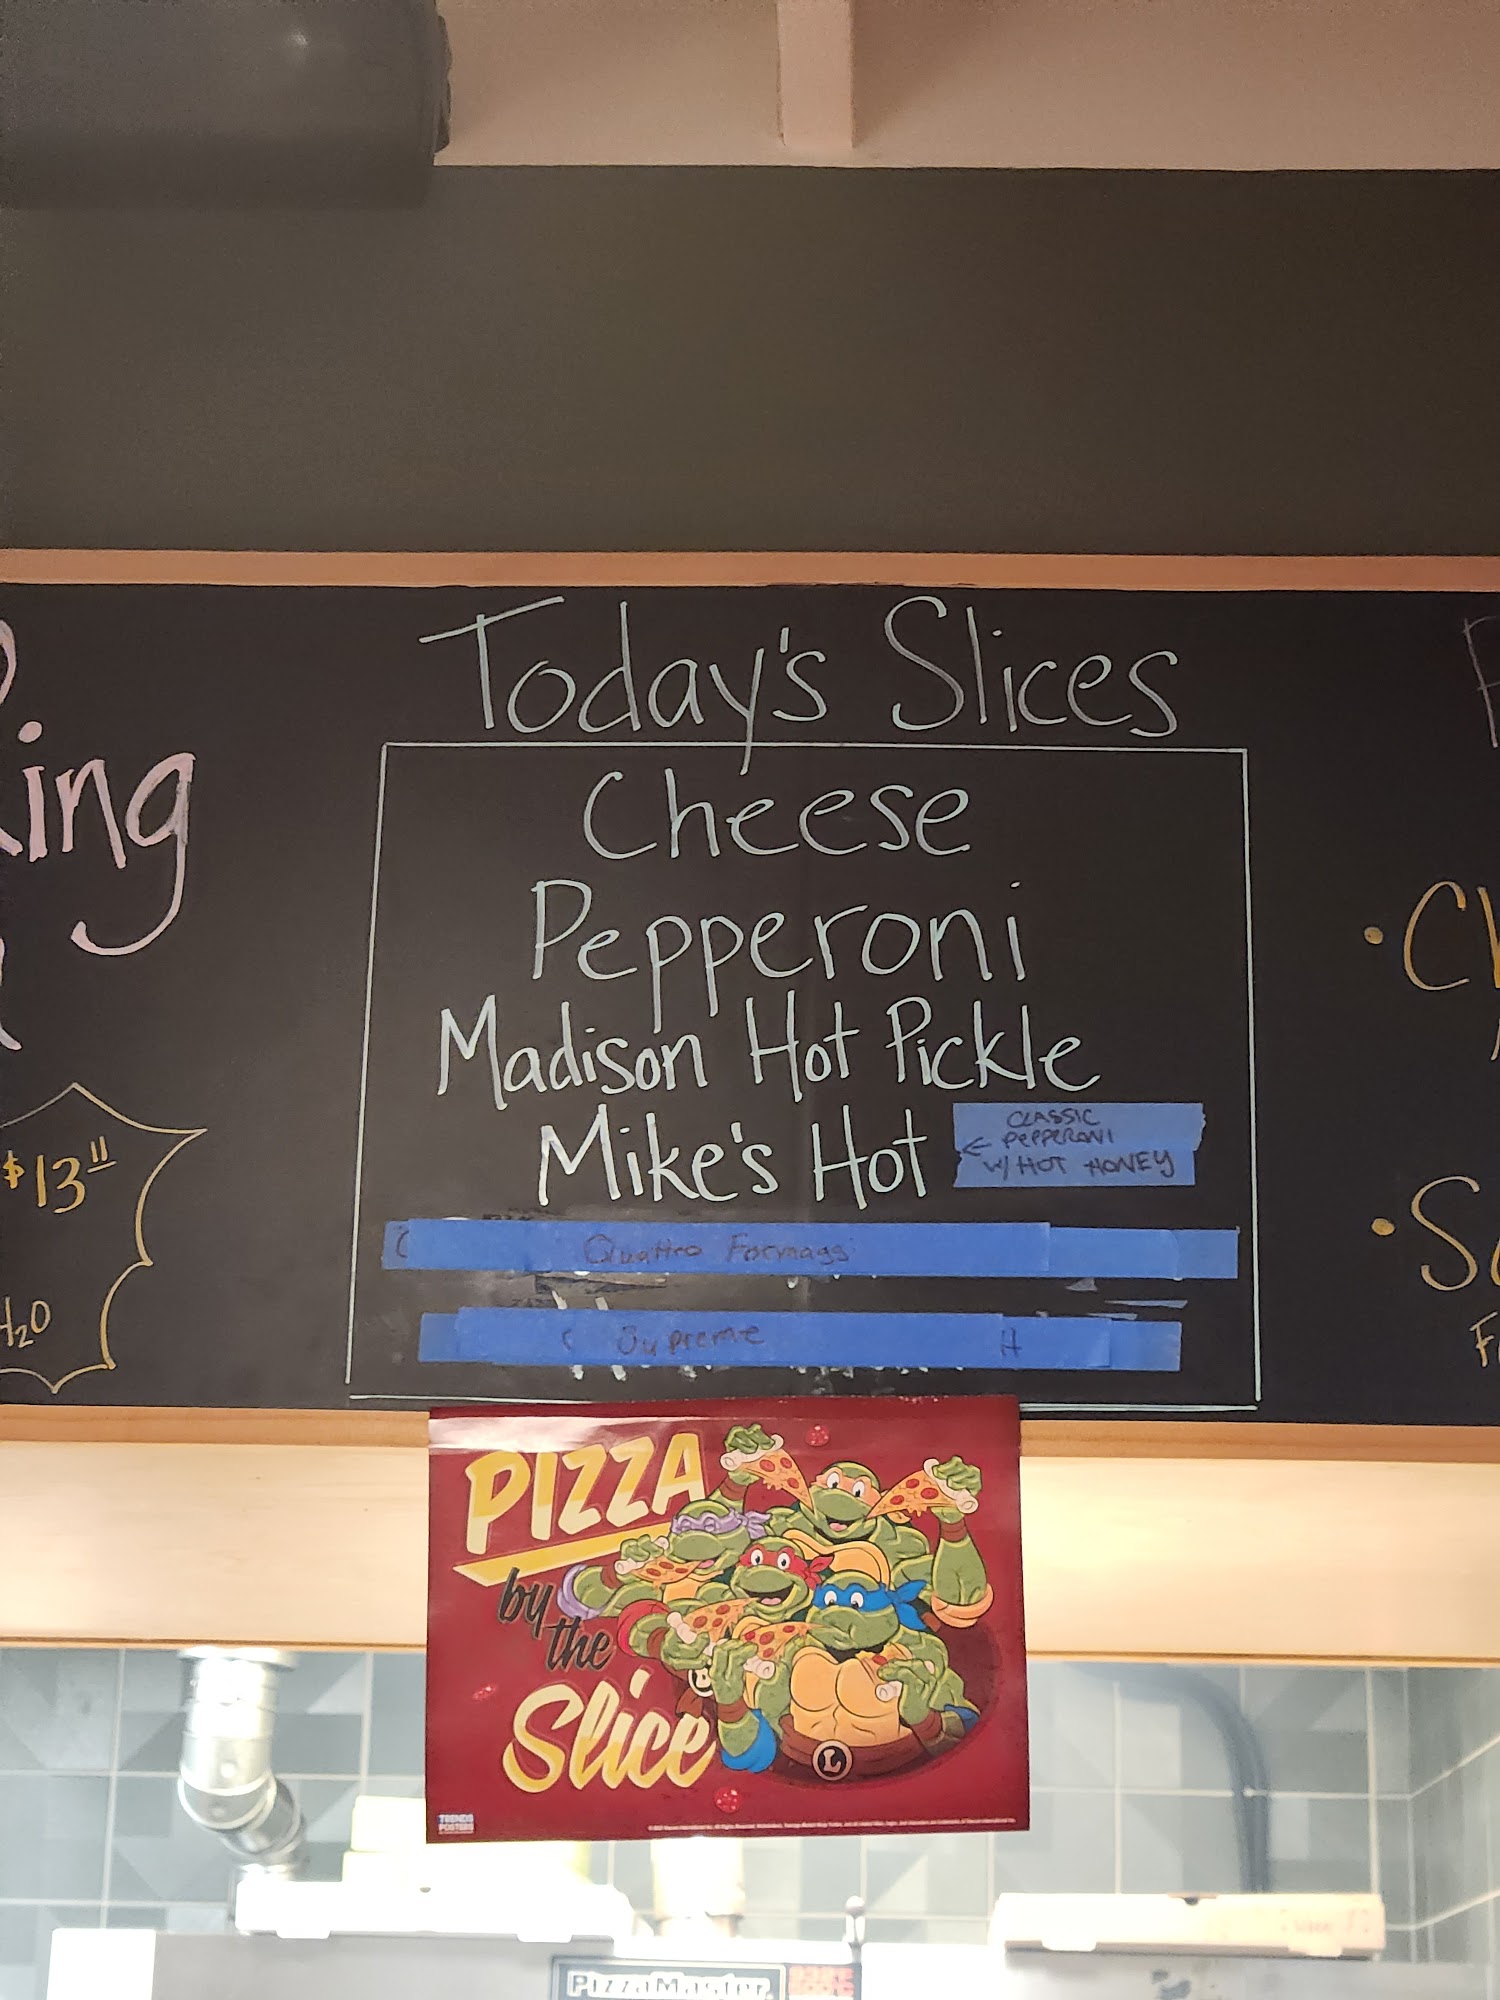 Today's Slices
Cheese
Pepperoni
Madison Hot Pickle
Mike's Hot
CLASSIC
← PEPPERONI
W/ HOT HONEY
Quattro Formaggi
Supreme
H
ing
$13"
H2O
PIZZA
by
the
Slice
L
TRENDS
POSTERS
PizzaMaster